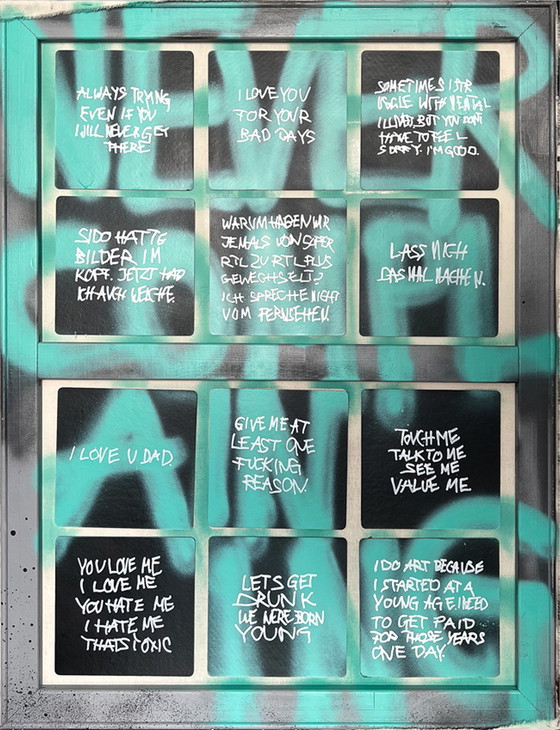 ALWAYS TRYING
EVEN IF YOU
WILL NEVER GET
THERE.
I LOVE YOU
FOR YOUR
BAD DAYS
SOMETIMES I STR
UGGLE WITH MENTAL
ILLNES, BUT YOU DONT
HAVE TO FEEL
SORRY. I'M GOOD.
SIDO HATTE
BILDER IM
KOPF. JETZT HAB
ICH AUCH WELCHE.
WARUM HABEN WIR
JEMALS VON SUPER
RTL ZU RTL PLUS
GEWECHSELT?
ICH SPRECHE NICHT
VOM FERNSEHEN.
LASS MICH
DAS MAL MACHEN.
I LOVE U DAD.
GIVE ME AT
LEAST ONE
FUCKING
REASON.
TOUCH ME
TALK TO ME
SEE ME
VALUE ME
YOU LOVE ME
I LOVE ME
YOU HATE ME
I HATE ME
THATS
LETS GET
DRUNK
WE WERE BORN
YOUNG
I DO ART BECAUSE
I STARTED AT A
YOUNG AGE. I NEED
TO GET PAID
FOR THOSE YEARS
ONE DAY.